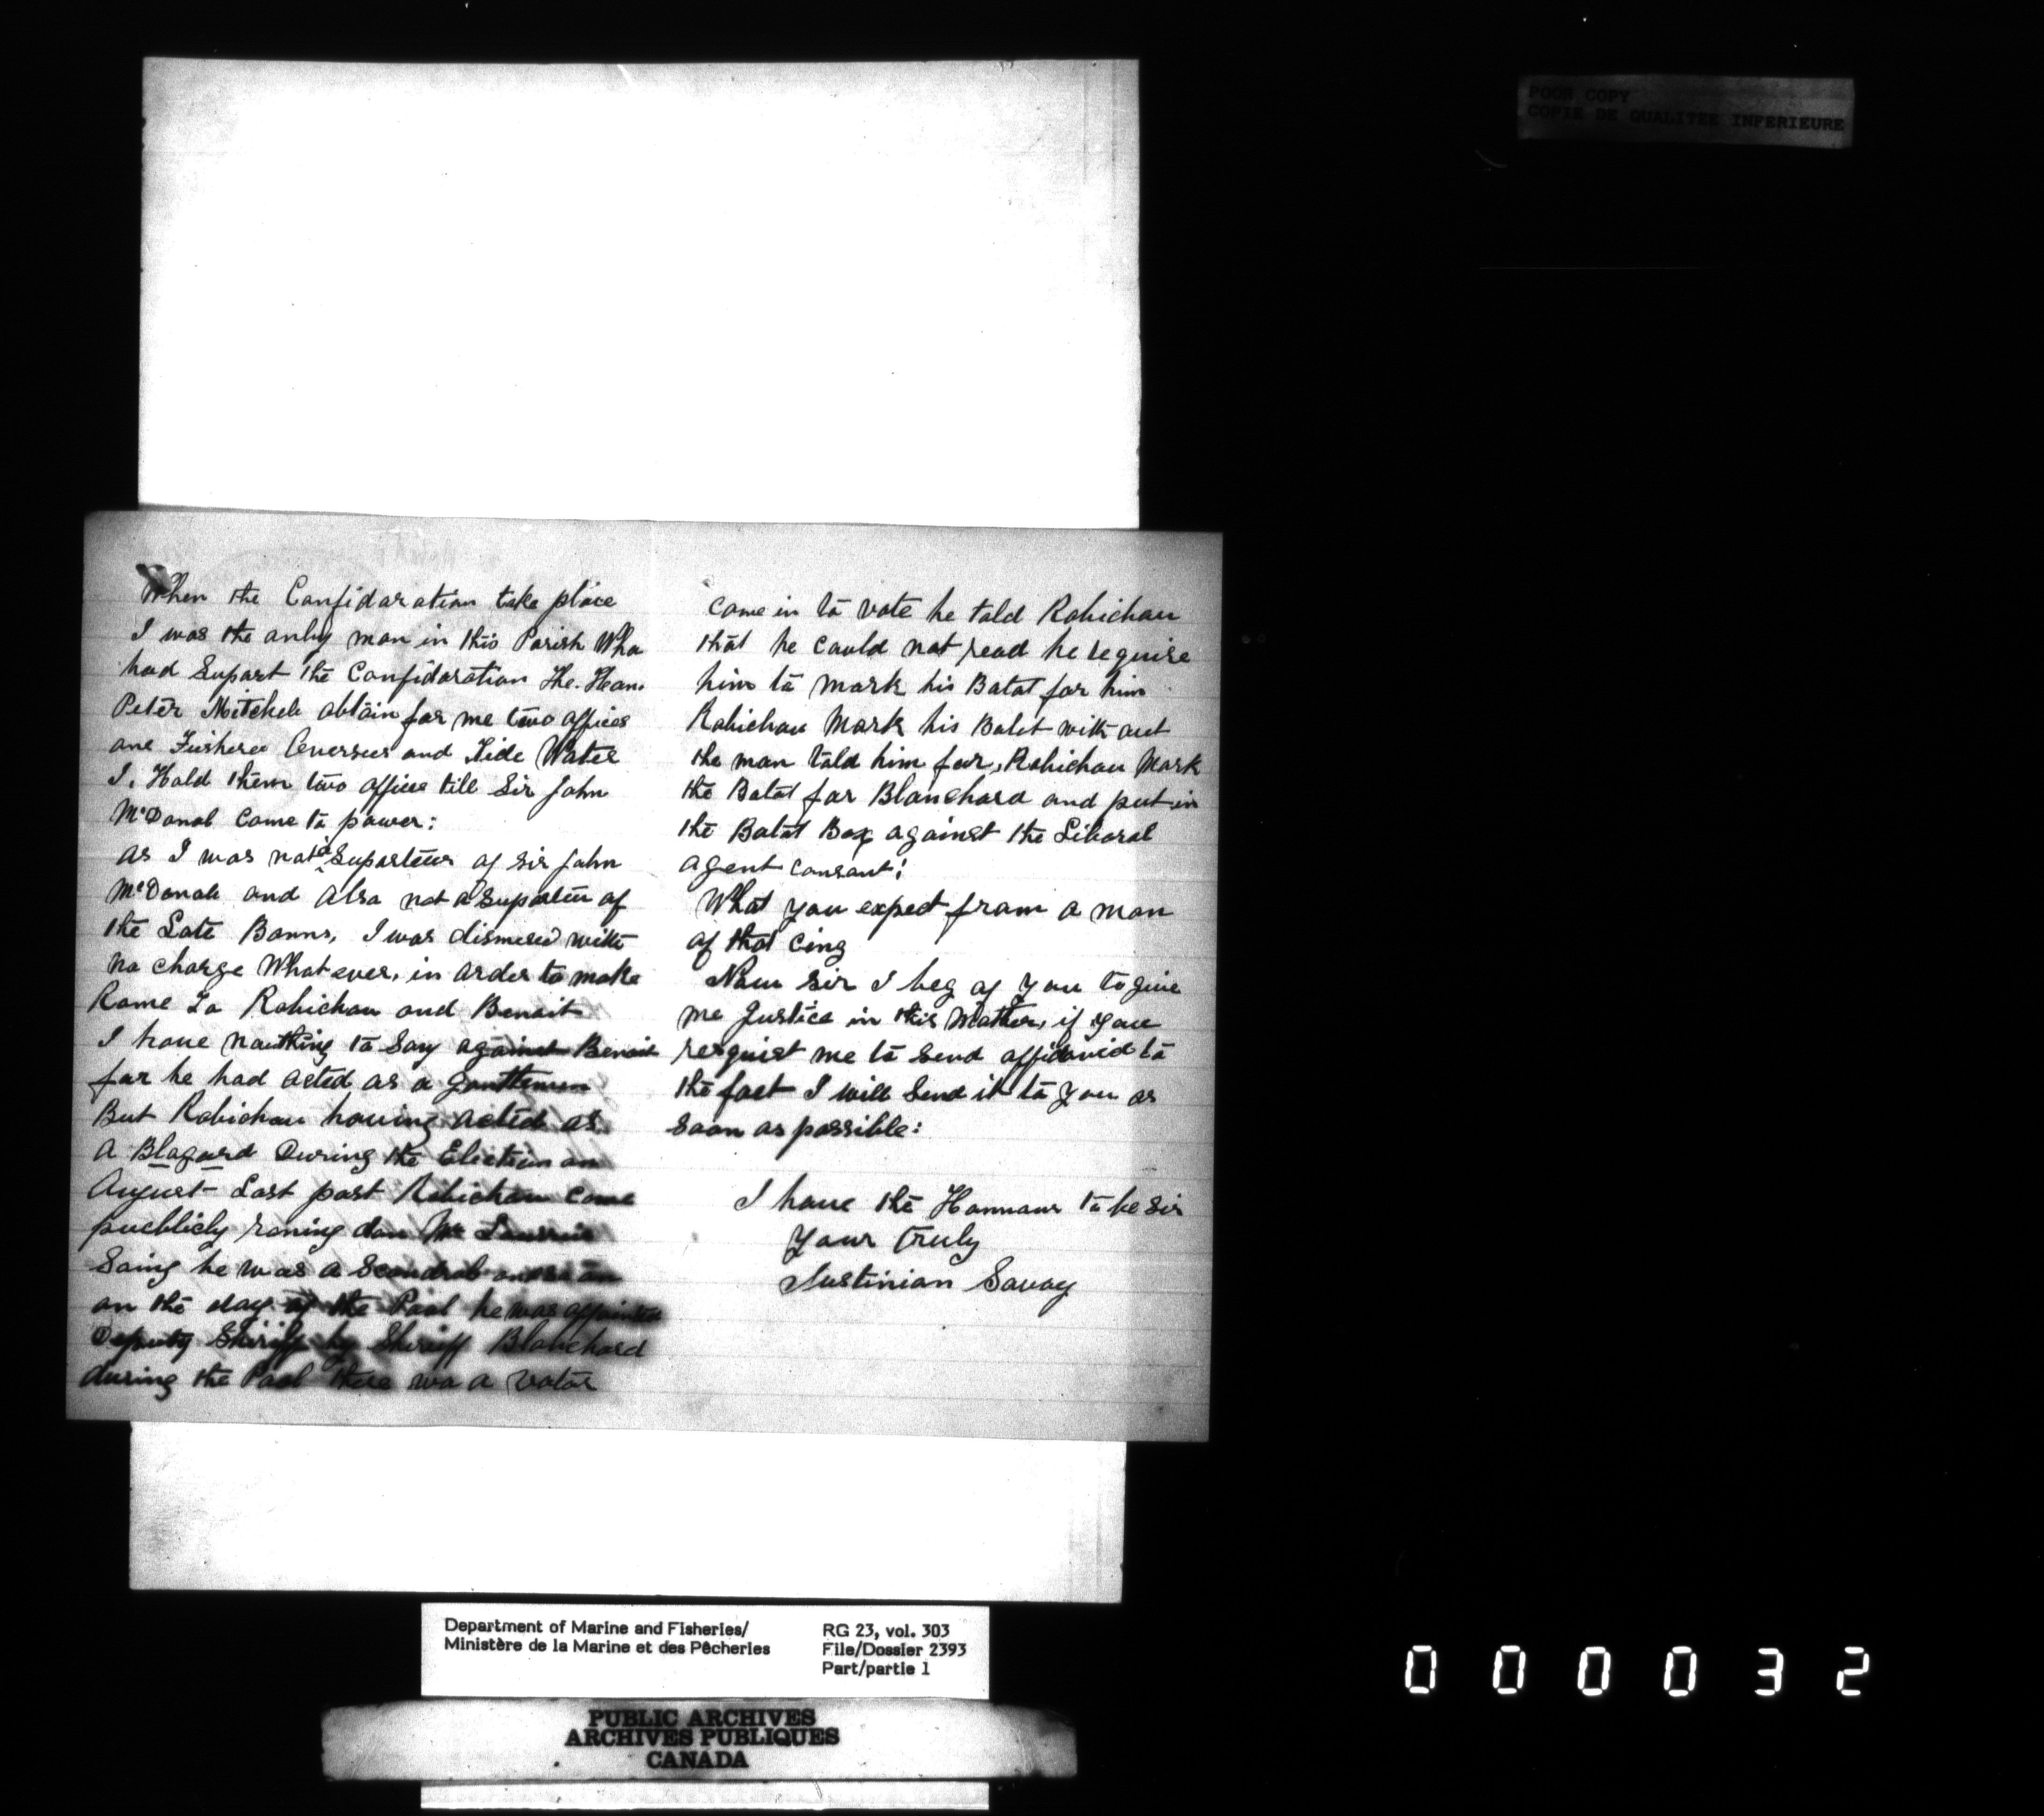 POOR COPY
COPIE DE QUALITEE INFERIEURE
When the Confidaration take place
I was the only man in this Parish Who
had Suport the Confidaration The. Hon.
Peter Mitchele obtain for me two offices
one Fusheree Oversear and Tide Water
I. Hold them two office till Sir John
McDonal Come to power:
as I was not a Suporteur of Sir John
McDonale and Also not a Suporteur of
the Late Banns, I was dismised with
no charge What ever, in order to make
Rome To Robichau and Benoit
I have nauthing to Say against Benoit
for he had acted as a gentlemen
But Robichau having acted as
a Blagard During the Election on
August Last past Robichau Come
pueblicly roning don Mr Laurrie
Saing he was a Scondral
on the day of the Pool he was appointed
Deputy Shiriff by Shiriff Blanchard
during the Pool there wa a votor
come in to vote he told Robichau
that he could not read he requise
him to mark his Balot for him
Robichau Mark his Balot with out
the man told him for, Robichau Mark
the Balot for Blanchard and put in
the Balot Box against the Liberal
agent consant:
What you expect from a man
of that cing
Now Sir I beg of you to give
me Justice in this Mather, if you
resquist me to Send affidavid to
the fact I will Send it to you as
Soon as possible:
I have the Honnour to be Sir
Your Truly
Justinian Savoy
Department of Marine and Fisheries/
Ministère de la Marine et des Pêcheries
RG 23, vol. 303
File/Dossier 2393
Part/partie 1
PUBLIC ARCHIVES
ARCHIVES PUBLIQUES
CANADA
000032